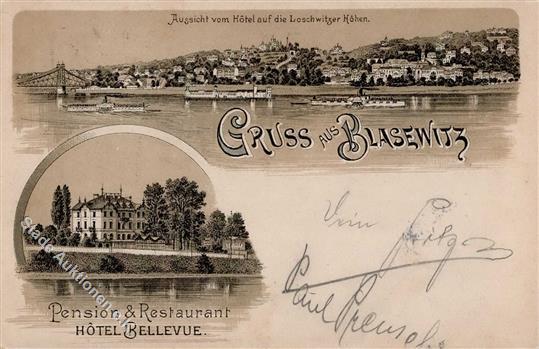 Aussicht vom Hôtel auf die Loschwitzer Höhen.
GRUSS AUS BLASEWITZ
Pension & Restaurant
HÔTEL BELLEVUE.
Vom Fritz
Paul
Stadt-Auktionen.de